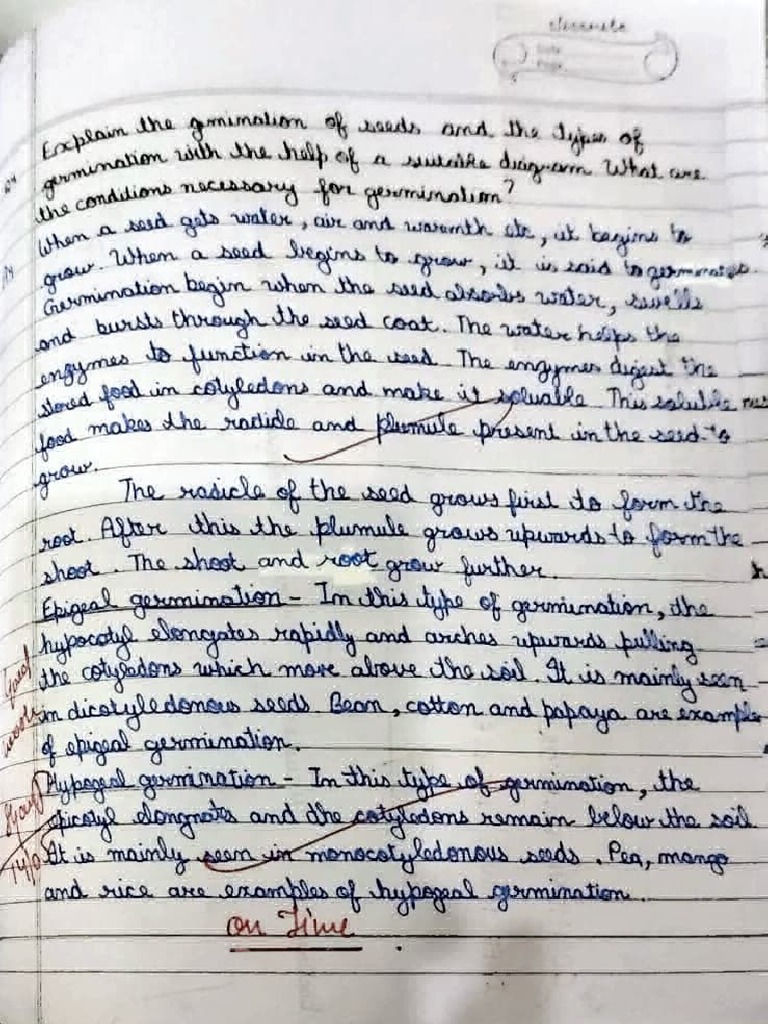 classmate
Date
Page
Q4 Explain the gmination of seeds and the types of
germination with the help of a suitable diagram. What are
the conditions necessary for germination?
When a seed gets water, air and warmth etc, it begins to
grow. When a seed begins to grow, it is said to germinate.
Germination begin when the seed absorbs water, swells
and bursts through the seed coat. The water helps the
enzymes to function in the seed. The enzymes digest the
stored food in cotyledons and make it soluable. This soluble
food makes the radicle and plumule present in the seed to
grow.
The radicle of the seed grows first to form the
root. After this the plumule grows upwards to form the
shoot. The shoot and root grow further.
Epigeal germination - In this type of germination, the
hypocotyl elongates rapidly and arches upwards pulling
the cotyledons which move above the soil. It is mainly seen
in dicotyledonous seeds. Bean, cotton and papaya are example
of epigeal germination.
Good
work
Hypogeal germination - In this type of germination, the
epicotyl elongnates and the cotyledons remain below the soil.
It is mainly seen in monocotyledonous seeds. Pea, mango
and rice are examples of hypogeal germination.
on Time